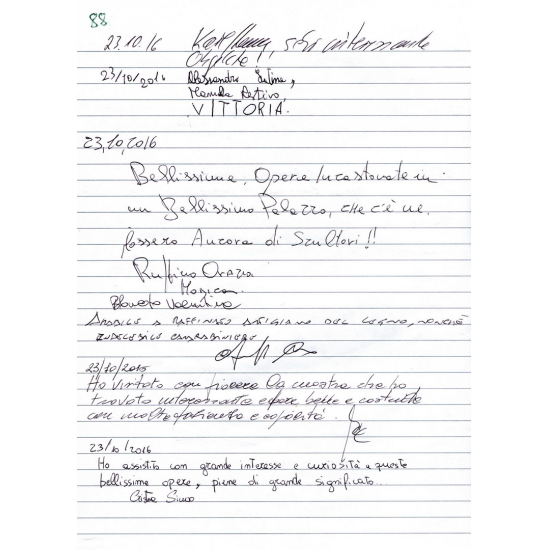 88
23.10.16
Objekte!!
23/10/2016 Alessandro
Manuela Restivo
VITTORIA.
23,10,2016
Bellissime, Opere Incastonate in
un Bellissimo Palazzo, CHE C'È NE
fossero Ancora di Scultori!!
Ruffino Orazio
Monica
Valentina
A RAFFINATO ARTIGIANO DEL LEGNO, NONCHÈ
CARABINIERE
23/10/2016
Ho visitato con piacere la mostra che ho
trovato interessante e opere belle e costruite
con molta e capacità.
23/10/2016
Ho assistito con grande interesse e curiosità a queste
bellissime opere, piene di grande significato..